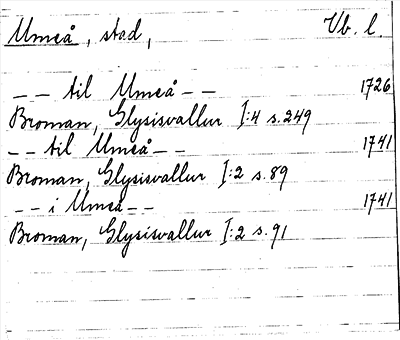 Umeå, stad, Vb. l.
-- til Umeå -- 1726
Broman, Glysisvallur I:4 s.249
-- til Umeå -- 1741
Broman, Glysisvallur I:2 s.89
-- i Umeå -- 1741
Broman, Glysisvallur I:2 s.91